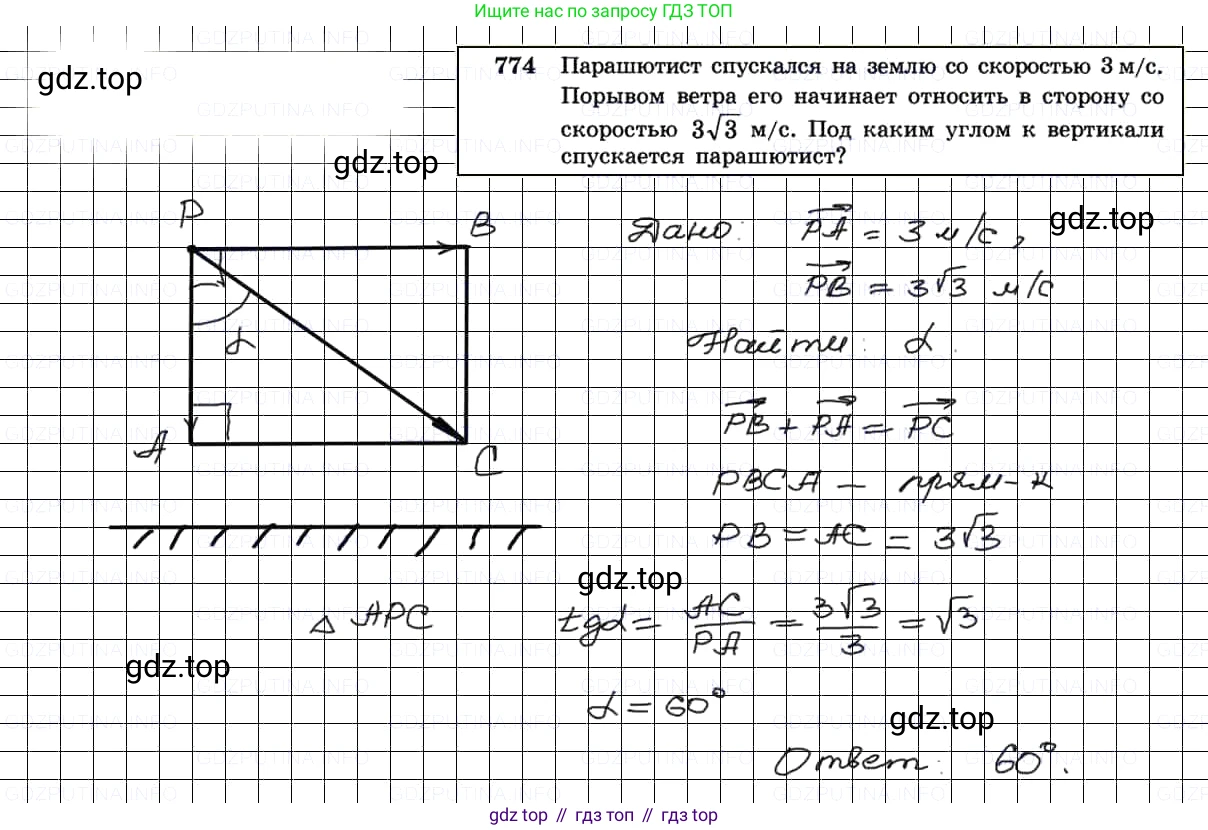 Ищите нас по запросу ГДЗ ТОП
gdz.top
774 Парашютист спускался на землю со скоростью 3 м/с.
Порывом ветра его начинает относить в сторону со
скоростью 3√3 м/с. Под каким углом к вертикали
спускается парашютист?
gdz.top
P
B
Дано: PA = 3 м/с,
gdz.top
PB = 3√3 м/с
α
Найти: α.
PB + PA = PC
A
C
PBCA – прям-к
PB = AC = 3√3
gdz.top
△ APC
tgα = AC/PA = 3√3/3 = √3
gdz.top
α = 60°
gdz.top
Ответ: 60°.
gdz top // гдз топ // гдз top
GDZPUTINA.INFO